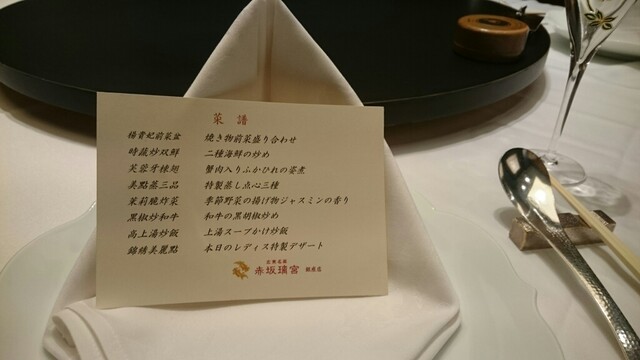 菜譜
楊貴妃前菜盆 焼き物前菜盛り合わせ
時蔬炒双鮮 二種海鮮の炒め
芙蓉牙楝翅 蟹肉入りふかひれの姿煮
美點蒸三品 特製蒸し点心三種
茉莉脆炸菜 季節野菜の揚げ物ジャスミンの香り
黒椒炒和牛 和牛の黒胡椒炒め
高上湯炒飯 上湯スープかけ炒飯
錦繍美麗點 本日のレディス特製デザート
赤坂璃宮 銀座店